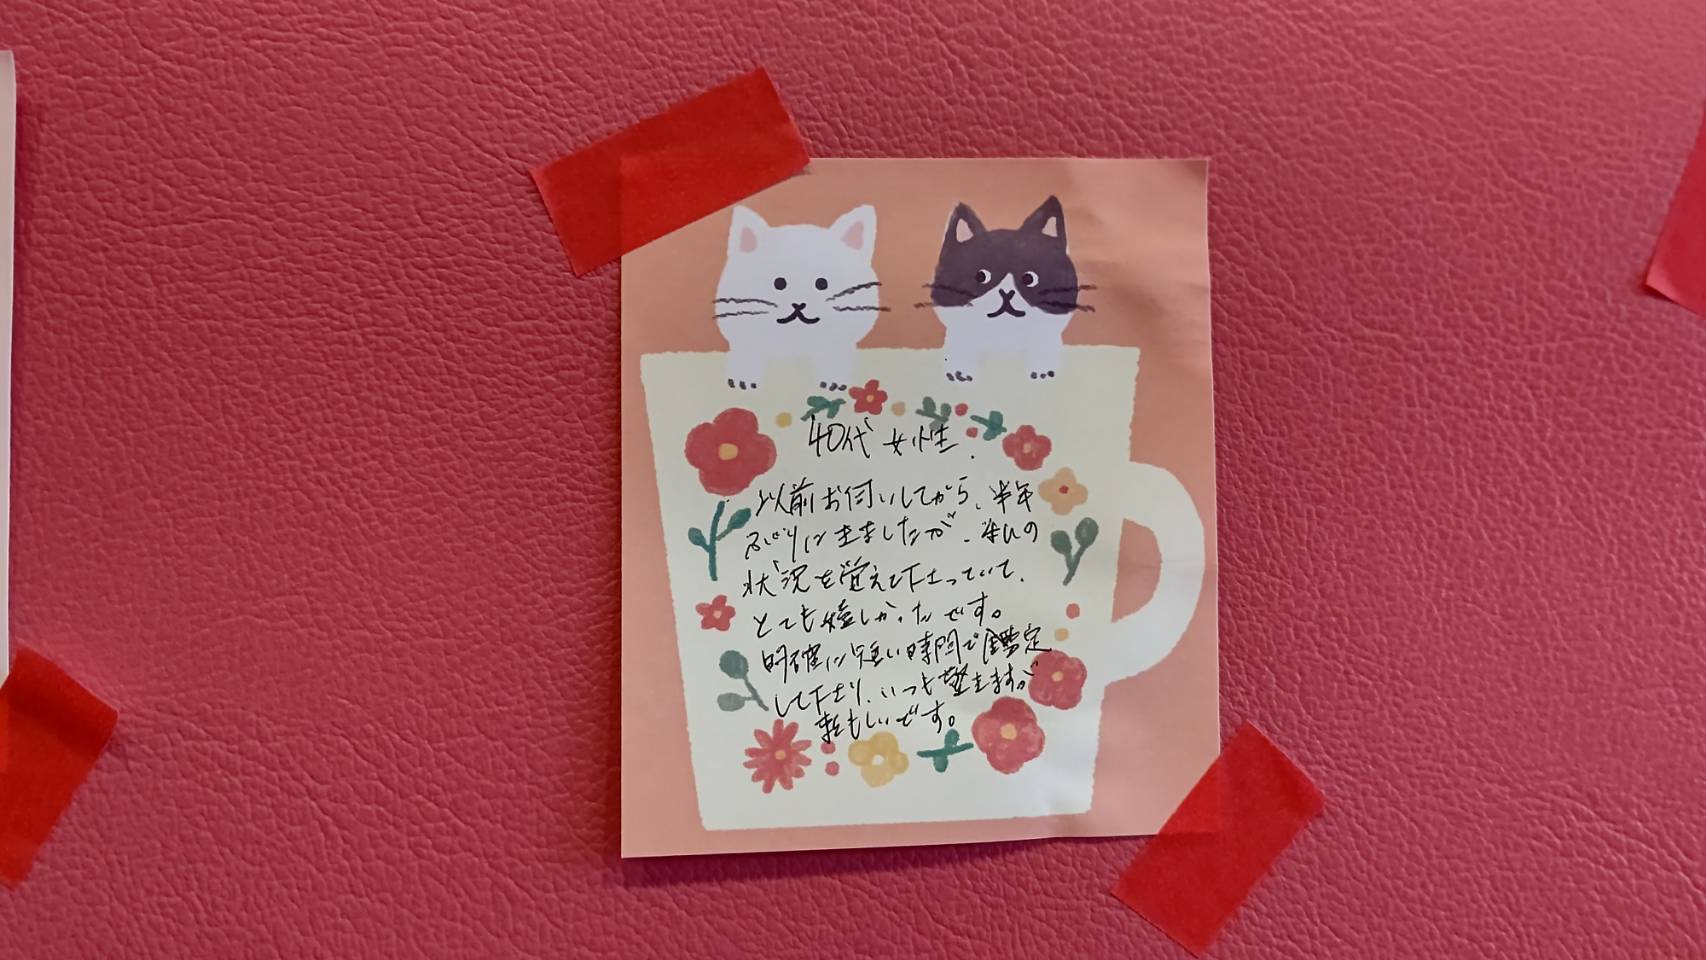 40代 女性.
以前お伺いしてから、半年
ぶりに来ましたが、私の
状況を覚えて下さっていて、
とても嬉しかったです。
的確に短い時間で鑑定
して下さり、いつも驚きますが
頼もしいです。